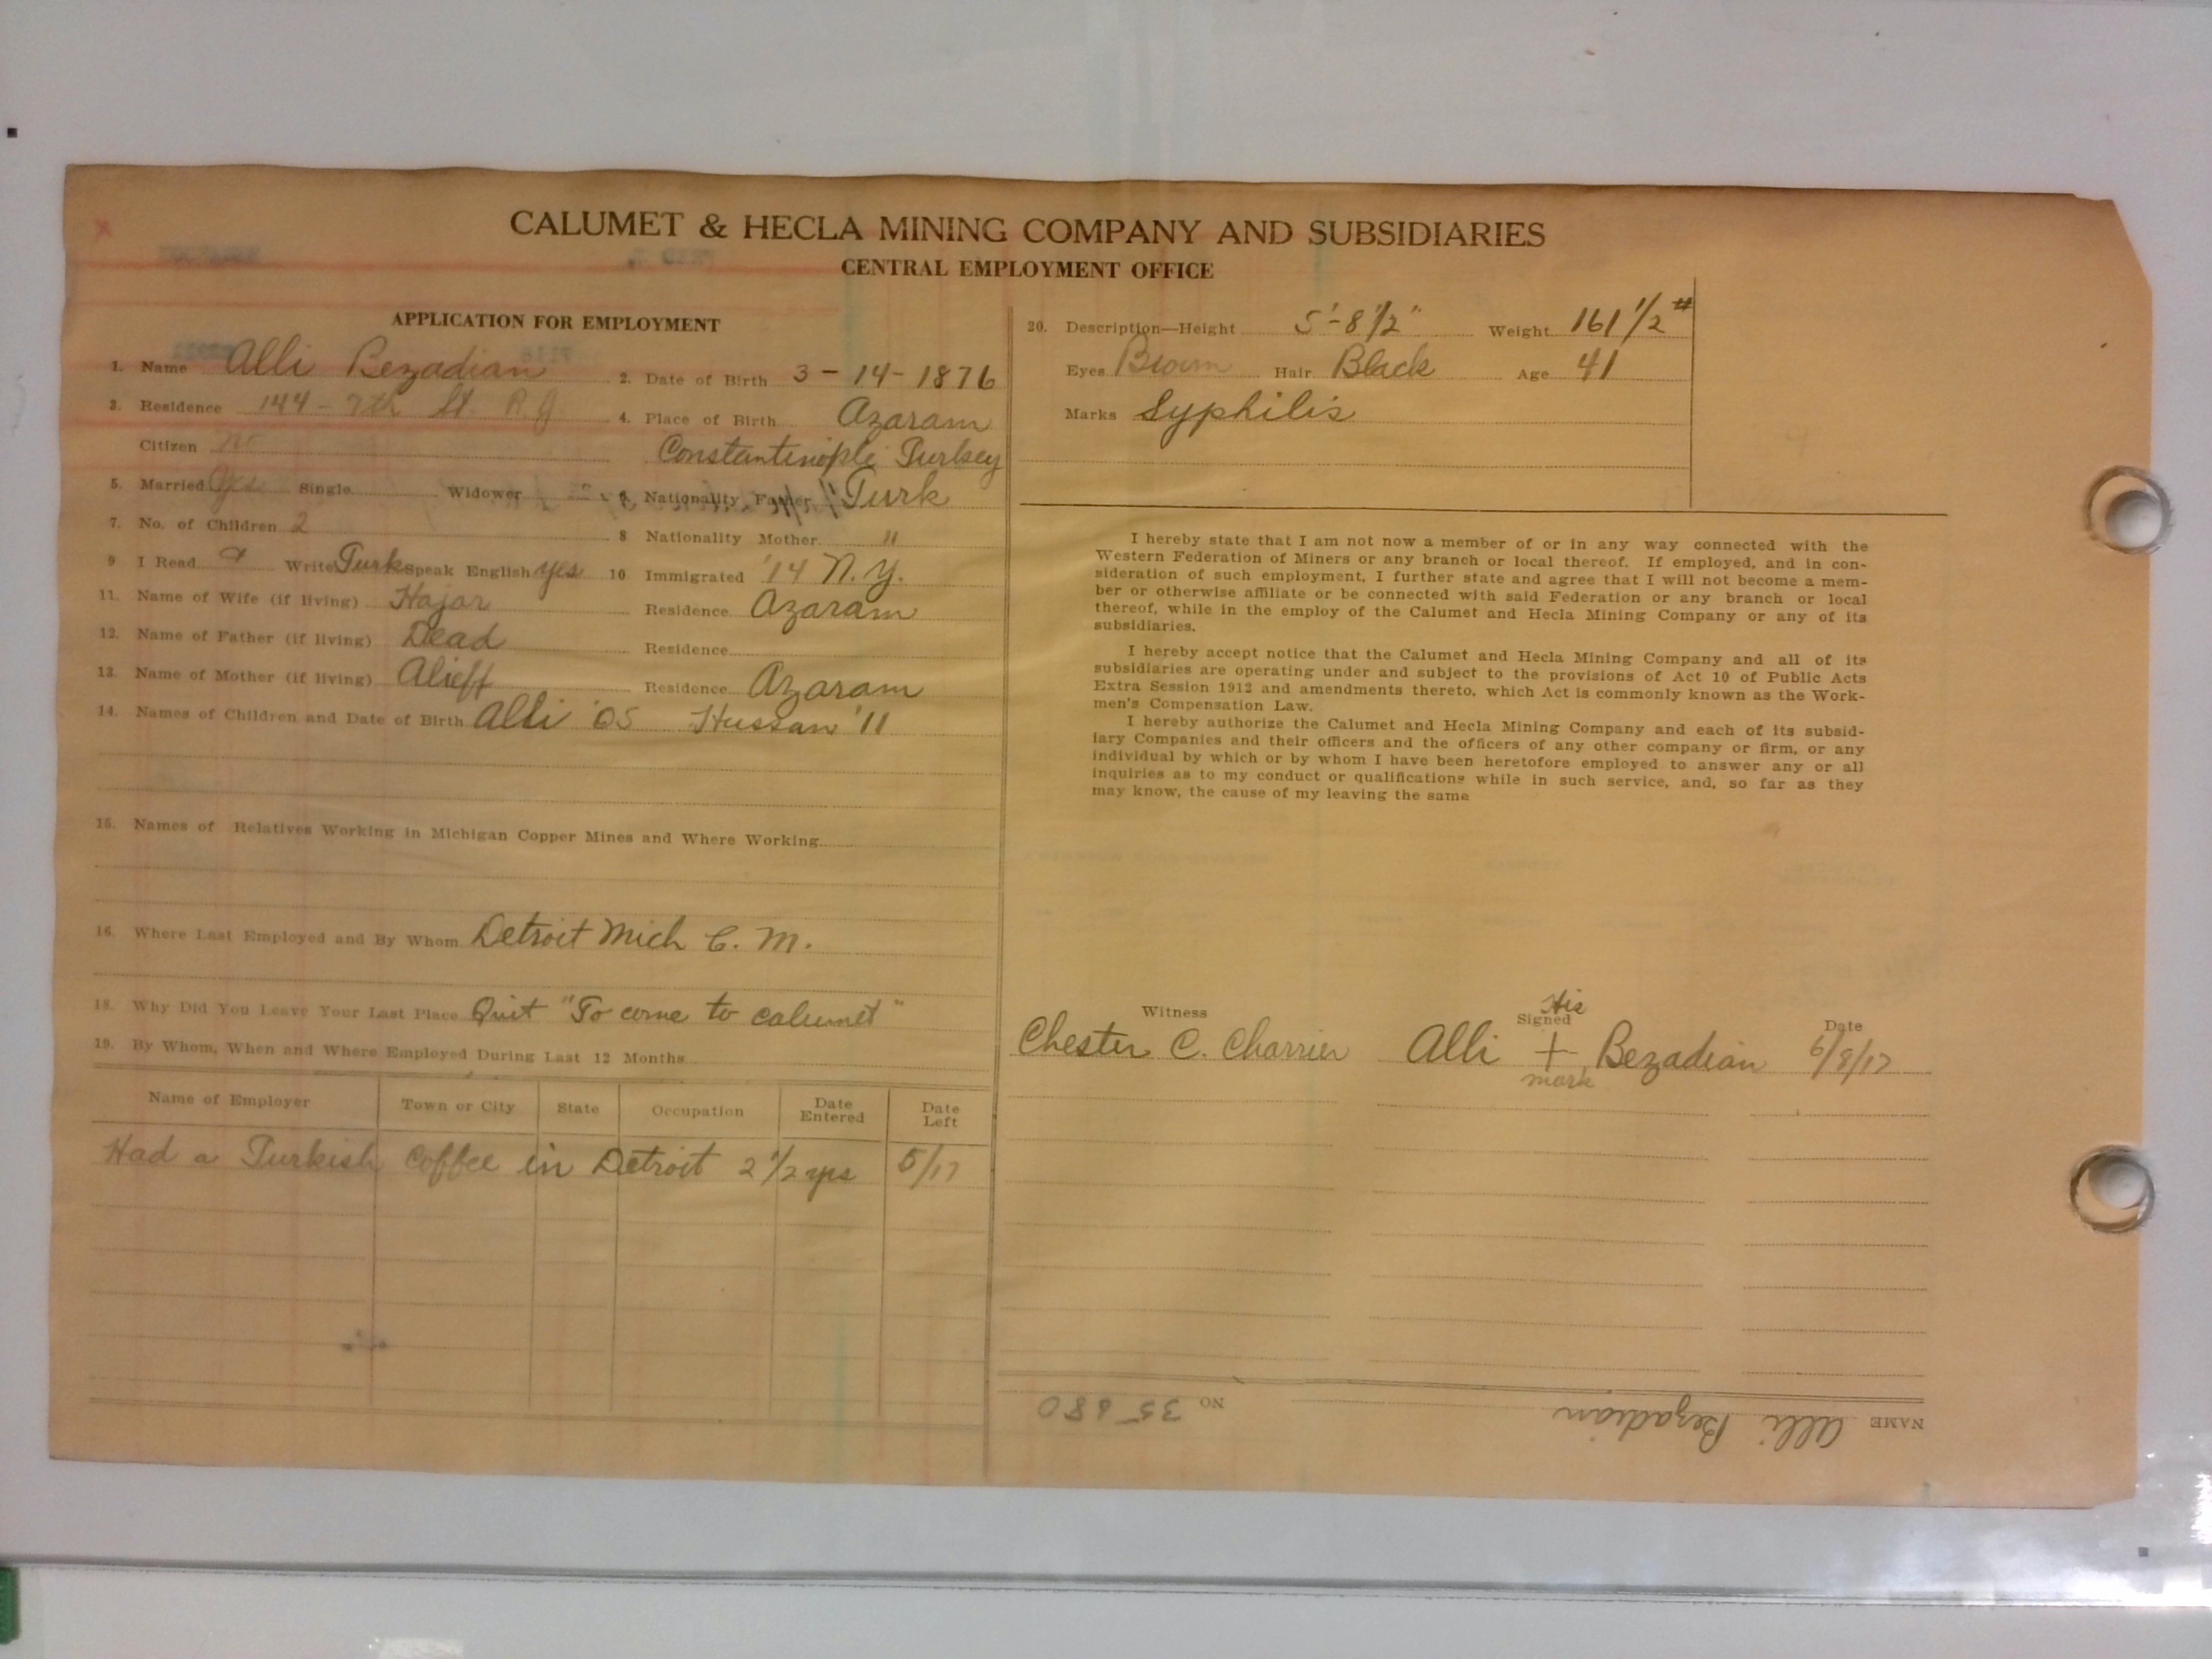 CALUMET & HECLA MINING COMPANY AND SUBSIDIARIES
CENTRAL EMPLOYMENT OFFICE
APPLICATION FOR EMPLOYMENT
1. Name Alli Bezadian 2. Date of Birth 3-14-1876
3. Residence 144-7th St. R.J. 4. Place of Birth Azaram
Citizen no Constantinople Turkey
5. Married Yes Single Widower 6. Nationality Father Turk
7. No. of Children 2 8 Nationality Mother "
9 I Read & Write Turk Speak English yes 10 Immigrated '14 N.Y.
11. Name of Wife (if living) Hajar Residence Azaram
12. Name of Father (if living) Dead Residence
13. Name of Mother (if living) Alieff Residence Azaram
14. Names of Children and Date of Birth Alli '05 Hussan '11
15. Names of Relatives Working in Michigan Copper Mines and Where Working
16. Where Last Employed and By Whom Detroit Mich C. M.
18. Why Did You Leave Your Last Place Quit "To come to calumet"
19. By Whom, When and Where Employed During Last 12 Months
Name of Employer Town or City State Occupation Date Entered Date Left
Had a Turkish coffee in Detroit 2 1/2 yrs 5/17
20. Description—Height 5'-8 1/2" Weight 161 1/2 #
Eyes Brown Hair Black Age 41
Marks Syphilis
I hereby state that I am not now a member of or in any way connected with the
Western Federation of Miners or any branch or local thereof. If employed, and in con-
sideration of such employment, I further state and agree that I will not become a mem-
ber or otherwise affiliate or be connected with said Federation or any branch or local
thereof, while in the employ of the Calumet and Hecla Mining Company or any of its
subsidiaries.
I hereby accept notice that the Calumet and Hecla Mining Company and all of its
subsidiaries are operating under and subject to the provisions of Act 10 of Public Acts
Extra Session 1912 and amendments thereto, which Act is commonly known as the Work-
men's Compensation Law.
I hereby authorize the Calumet and Hecla Mining Company and each of its subsid-
iary Companies and their officers and the officers of any other company or firm, or any
individual by which or by whom I have been heretofore employed to answer any or all
inquiries as to my conduct or qualifications while in such service, and, so far as they
may know, the cause of my leaving the same
Witness Signed Date
His
Chester C. Charrier Alli + Bezadian 6/8/17
mark
NAME Alli Bezadian NO 35680